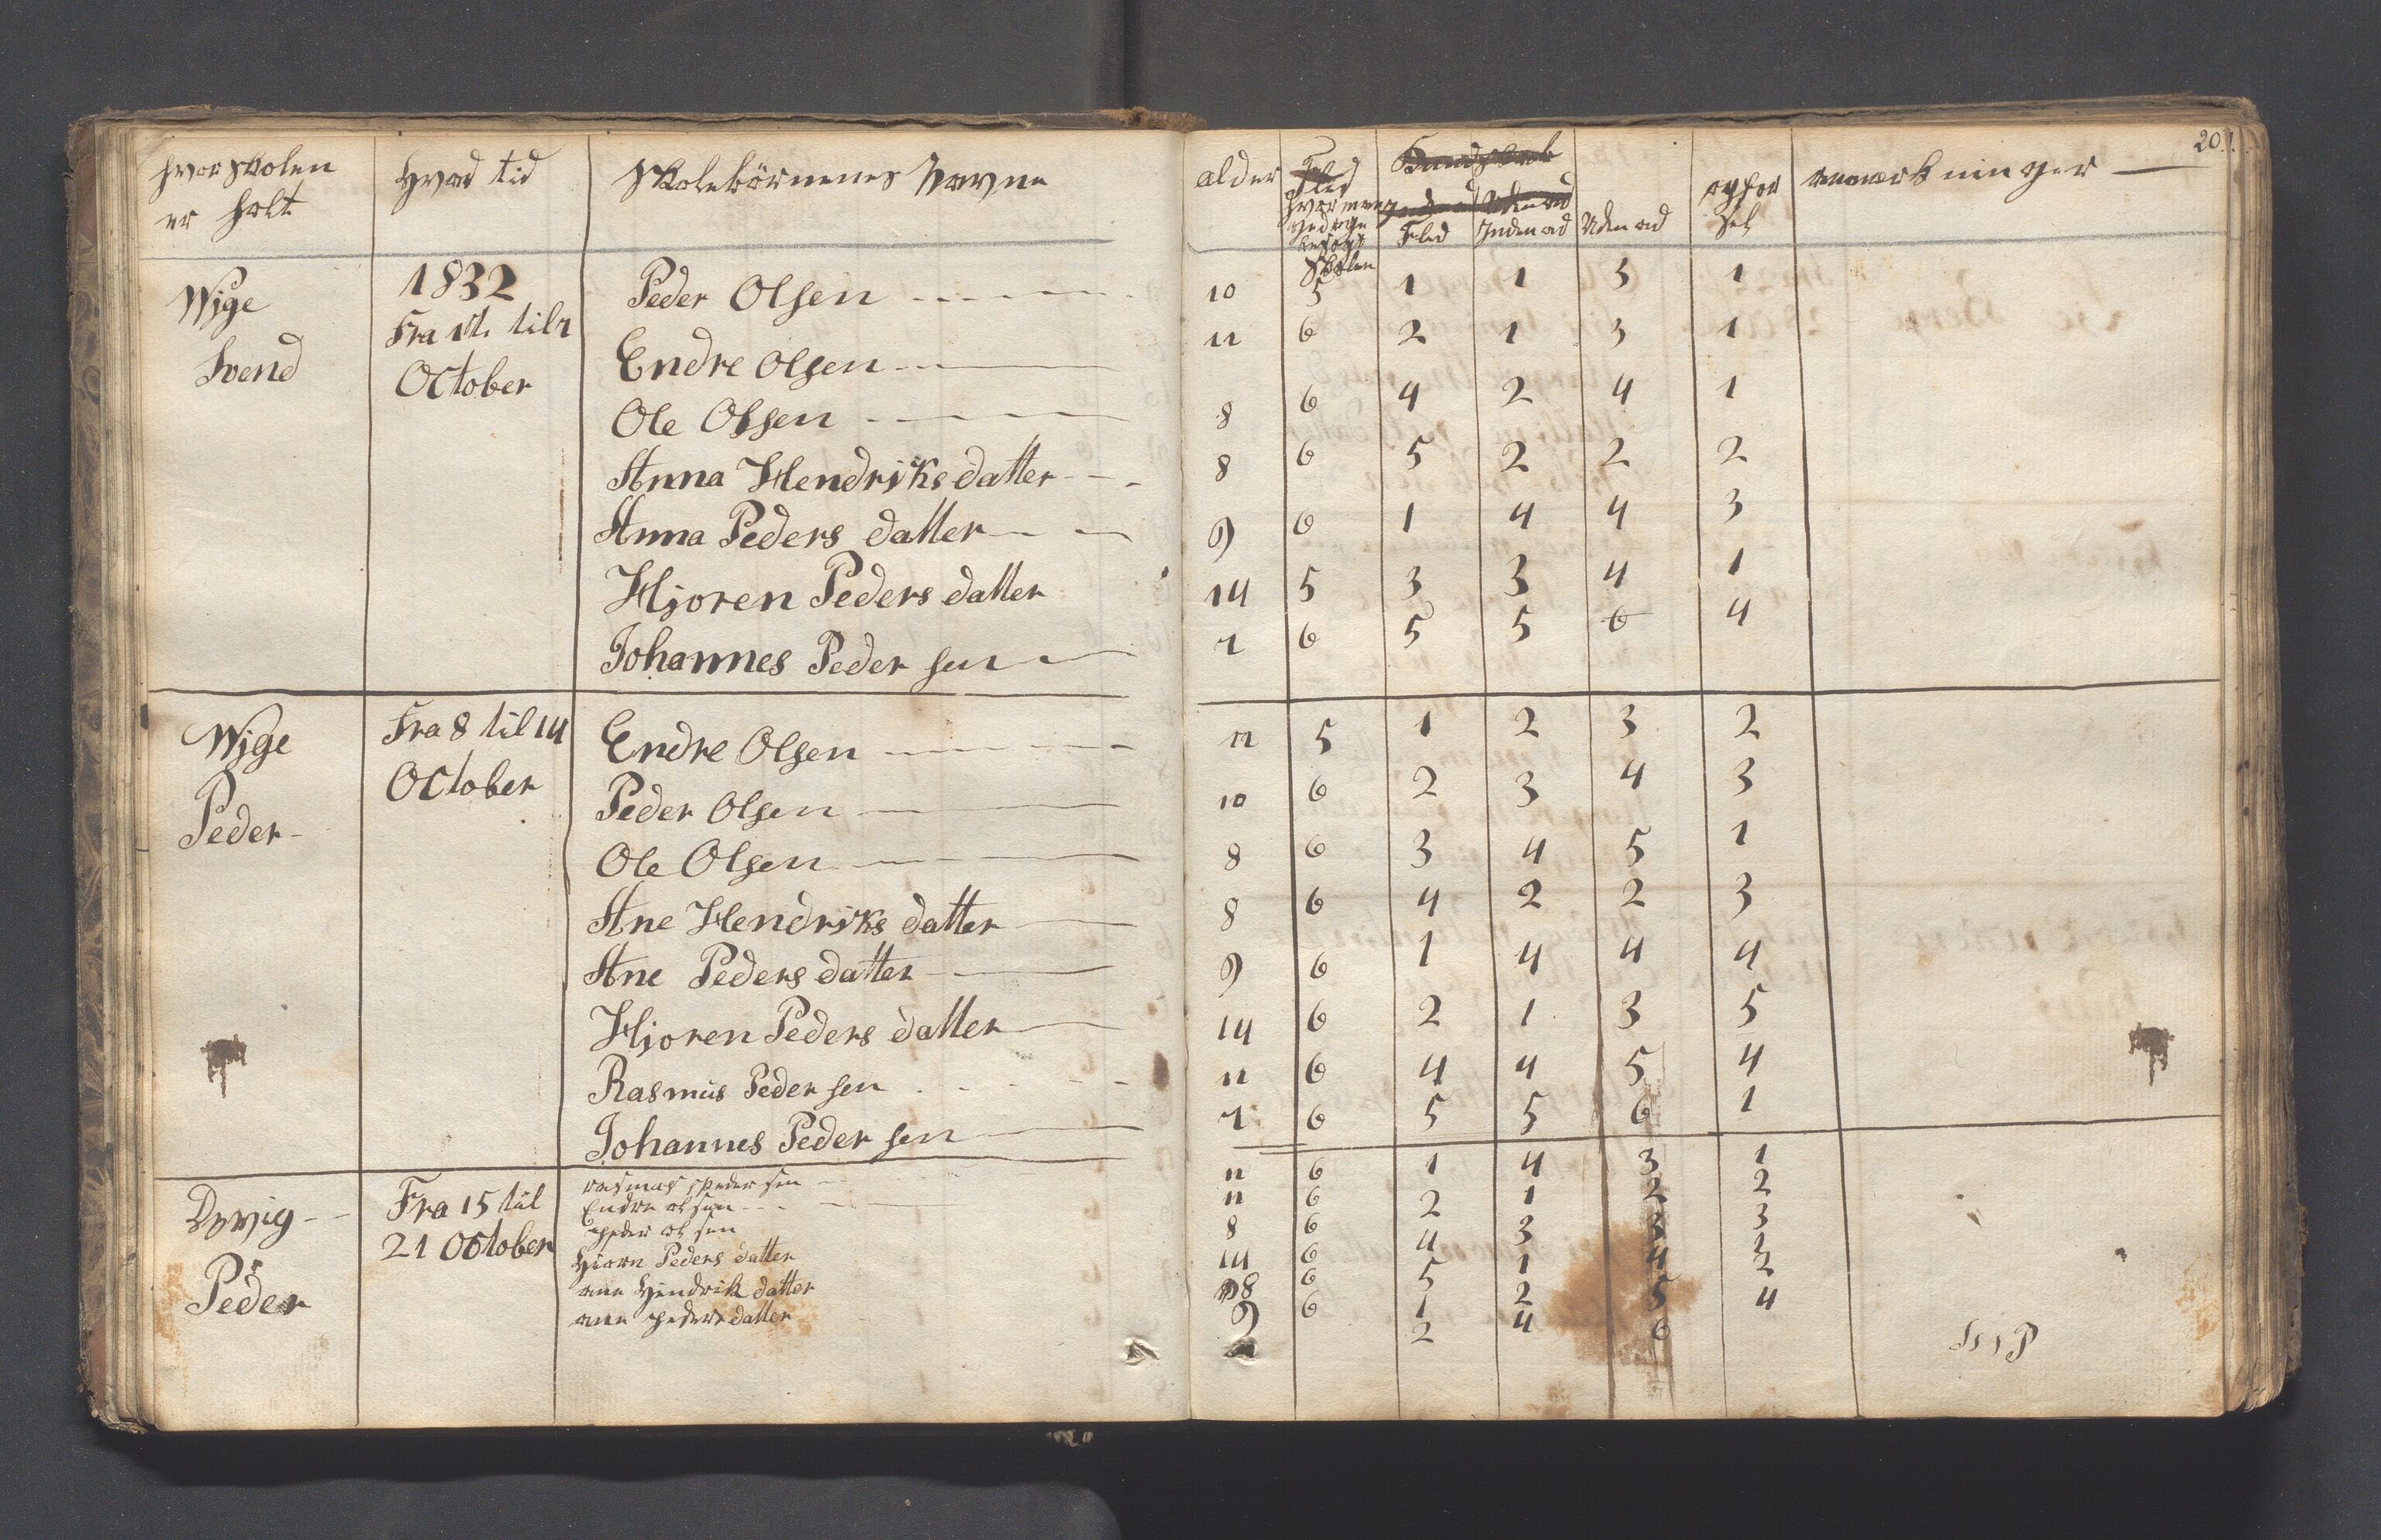 hvor skolen er holt | Hvad tid | Skolebörnenes Navne | alder | hvor mange gedage besogt Skolen | Flid | Inden ad | Uden ad | opfør sel | anmærkninger | 20
Wige Svend | 1832 Fra 1ste til 7 October | Peder Olsen | 10 | 5 | 1 | 1 | 3 | 1
Endre Olsen | 11 | 6 | 2 | 1 | 3 | 1
Ole Olsen | 8 | 6 | 4 | 2 | 4 | 1
Anna Hendriks datter | 8 | 6 | 5 | 2 | 2 | 2
Anna Peders datter | 9 | 6 | 1 | 4 | 4 | 3
Hjoren Peders datter | 14 | 5 | 3 | 3 | 4 | 1
Johannes Peder sen | 7 | 6 | 5 | 5 | 6 | 4
Wige Peder | Fra 8 til 14 October | Endre Olsen | 11 | 5 | 1 | 2 | 3 | 2
Peder Olsen | 10 | 6 | 2 | 3 | 4 | 3
Ole Olsen | 8 | 6 | 3 | 4 | 5 | 1
Ane Hendriks datter | 8 | 6 | 4 | 2 | 2 | 3
Ane Peders datter | 9 | 6 | 1 | 4 | 4 | 4
Hjoren Peders datter | 14 | 6 | 2 | 1 | 3 | 5
Rasmus Peder sen | 11 | 6 | 4 | 4 | 5 | 4
Johannes Peder sen | 7 | 6 | 5 | 5 | 6 | 1
Dyvig Peder | Fra 15 til 21 October | rasmus Peder sen | 11 | 6 | 1 | 4 | 3 | 1
Endre ol sen | 11 | 6 | 2 | 1 | 2 | 2
peder ol sen | 8 | 6 | 4 | 3 | 3 | 3
Hiorn Peders datter | 14 | 6 | 5 | 1 | 4 | 2
ane Hendrik datter | 8 | 6 | 1 | 2 | 5 | 4
ane peders datter | 9 | 2 | 4 | 6